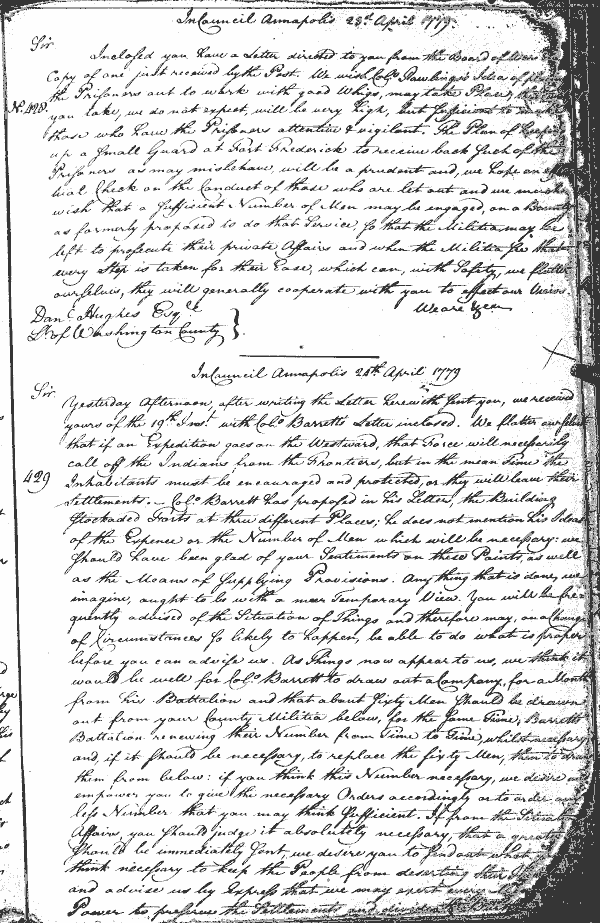 In Council Annapolis 23d. April 1779.
Sir
Inclosed you have a Letter directed to you from the Board of War &
Copy of one just received by the Post. We wish Colo. Rawlings's Idea of
No. 428.
the Prisoners out to work with good Whigs, may take Place,
you take, we do not expect, will be very high, but sufficient to make
those who have the Prisoners attentive & vigilant. The Plan of keeping
up a small Guard at Fort Frederick to receive back such of the
Prisoners as may misbehave, will be a prudent and, we hope an
tual Check on the Conduct of those who are let out and we
wish that a sufficient Number of Men may be engaged, on a Bounty
as formerly proposed to do that Service, so that the Militia may be
left to prosecute their private Affairs and when the Militia see that
every Step is taken for their Ease, which can, with Safety, we flatter
ourselves, they will generally cooperate with you to effect our Views.
We are &ca.
Danl. Hughes Esqr.
Lt. of Washington County }.
In Council Annapolis 24th April 1779
Sir.
Yesterday Afternoon, after writing the Letter herewith sent you, we received
yours of the 19th Inst. with Colo. Barretts Letter inclosed. We flatter ourselves
that if an Expedition goes on the Westward, that Force will necessarily
call off the Indians from the Frontiers, but in the mean Time the
429
Inhabitants must be encouraged and protected, or they will leave their
Settlements. Colo. Barrett has proposed in his Letter, the Building
Stockaded Forts at three different Places; he does not mention his Ideas
of the Expence or the Number of Men which will be necessary: we
should have been glad of your Sentiments on these Points, as well
as the Means of supplying Provisions. Any thing that is done, we
imagine, ought to be with a meer Temporary View. You will be fre-
quently advised of the Situation of Things and therefore may, on a Change
of Circumstances so likely to happen, be able to do what is proper
before you can advise us. As Things now appear to us, we think it
would be well for Colo. Barrett to draw out a Company, for a Month
from his Battalion and that about sixty Men should be drawn
out from your County Militia below, for the same Time, Barretts
Battalion renewing their Number from Time to Time, whilst necessary
and, if it should be necessary, to replace the sixty Men, them to draw
them from below: if you think this Number necessary, we desire and
empower you to give the necessary Orders accordingly or to order any
less Number that you may think sufficient. If from the Situation
Affairs, you should judge it absolutely necessary, that a greater
should be immediately sent, we desire you to find out what
think necessary to keep the People from deserting their
and advise us by Express that we may exert every
Power to preserve the Settlements and